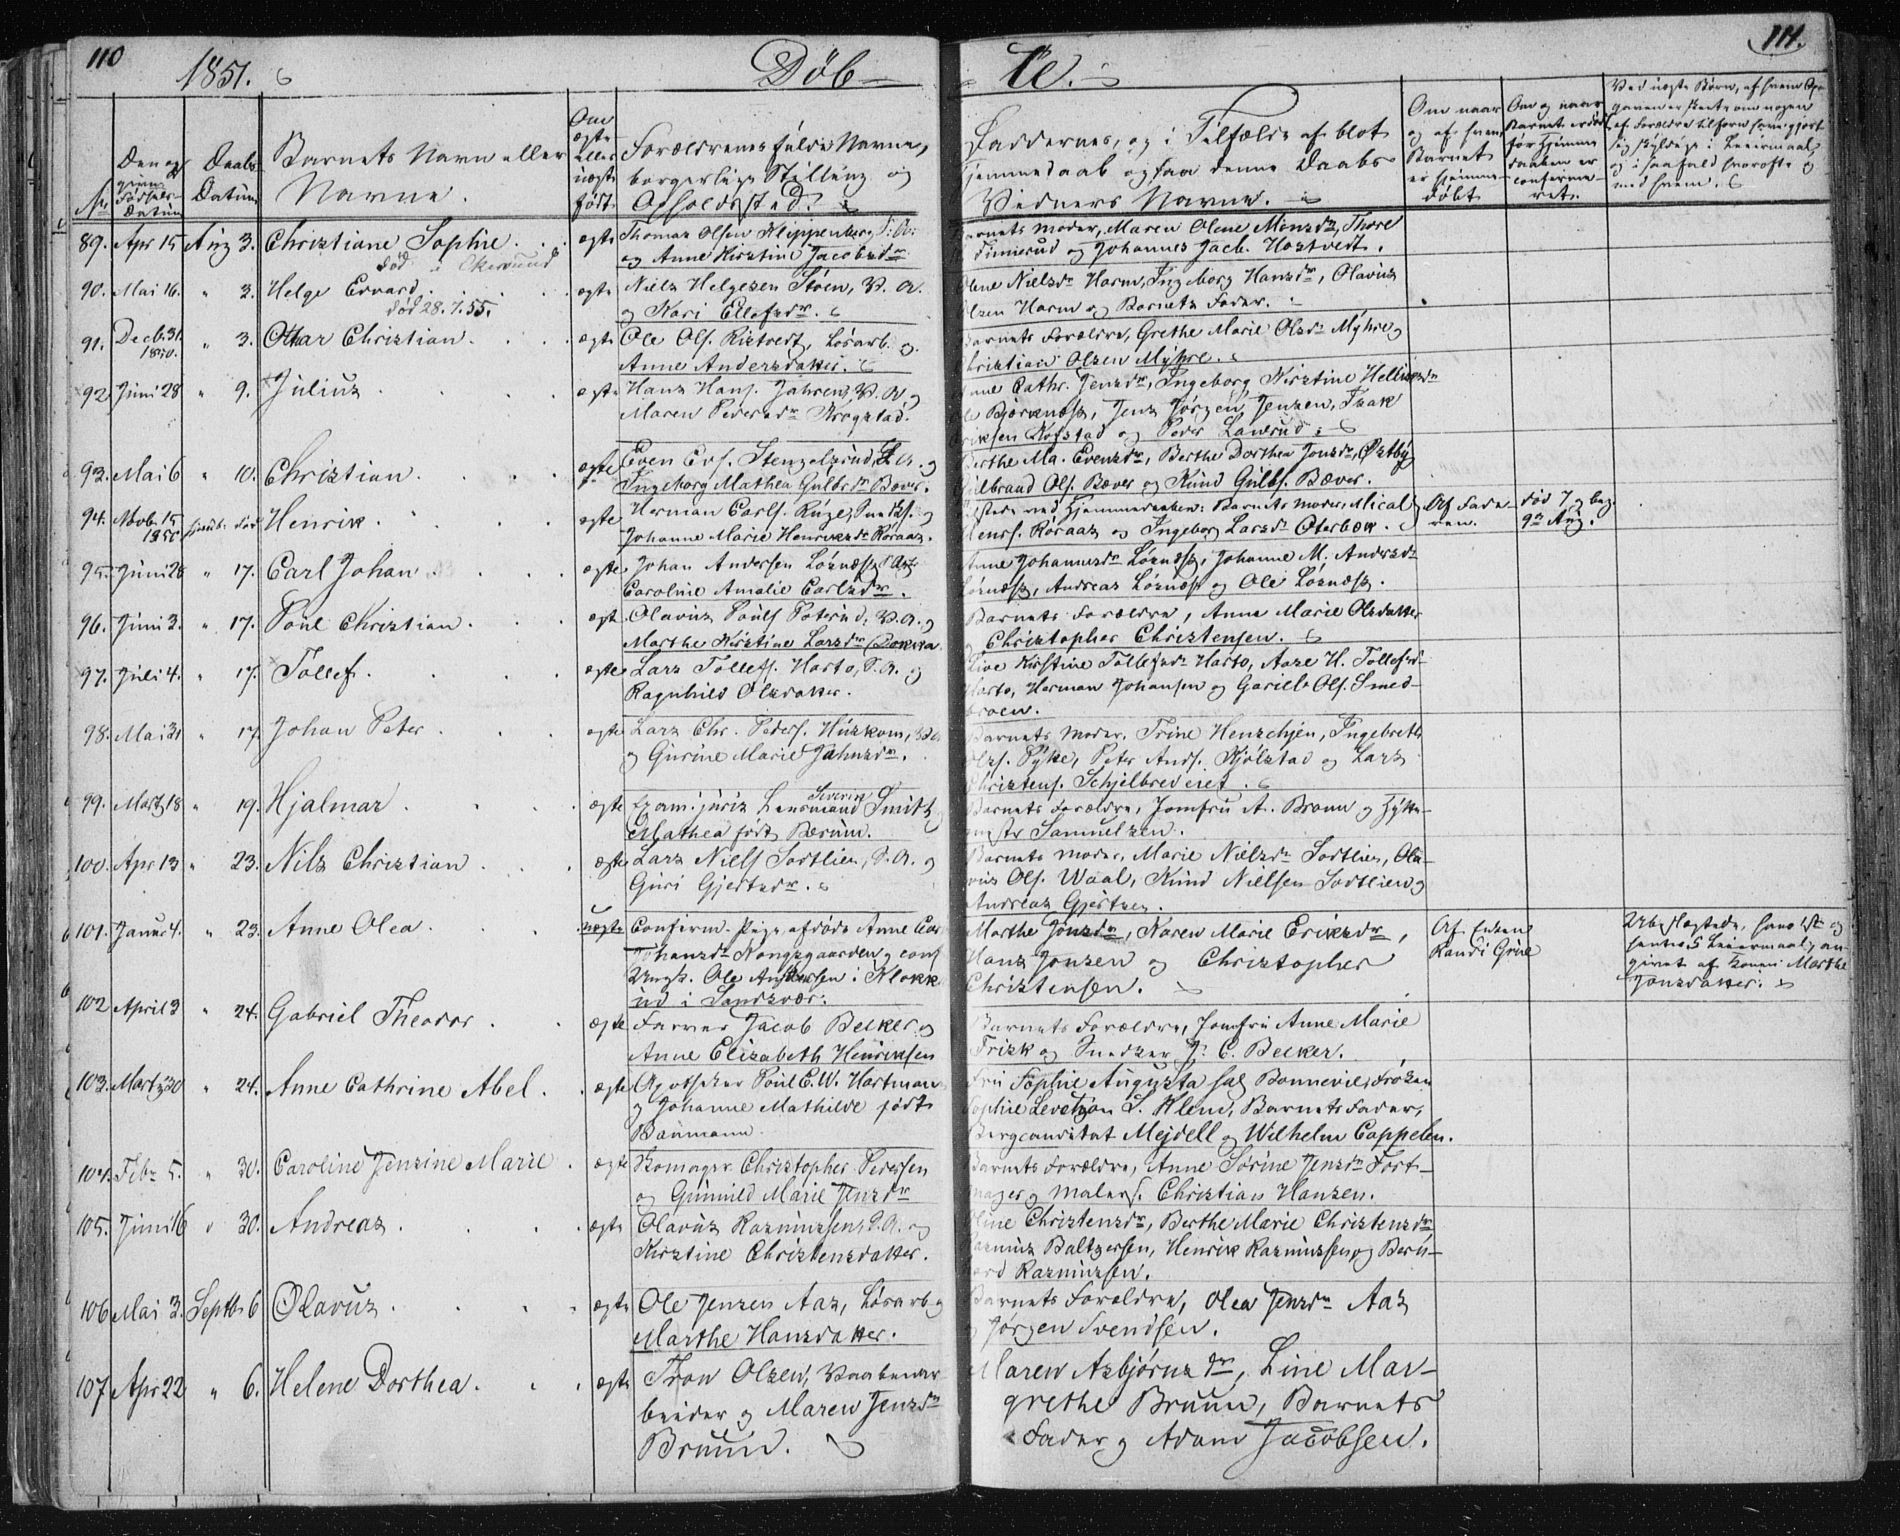 110
1851.
Døb-
te.
111.
No
Den og
Fødsels-
Datum
Daabs
Datum
Barnets Navn eller
Navne.
Om
ægte
eller
uægte
født.
Forældrenes fulde Navne,
borgerlige Stilling og
Opholdssted.
Faddernes, og i Tilfælde af blot
Hjemmedaab ogsaa denne Daabs
Vidners Navne.
Om naar
og af hvem
Barnet
er hjemme-
døbt
Om og naar
Barnet er død
før Hjemme
daaben er
confirme-
ret.
Ved uægte Børn, af hvem Op-
gaven er skeet, om nogen
af Forældre tilforn have gjort
sig skyldige i Leiermaal
og i saafald hvorofte og
med hvem.
89. Apr 15 Aug 3. Christiane Sophie. ægte Thomas Olsen Klippenberg, S. A.
død i Ekersund og Anne Kirstine Jacobsdr
Barnets Moder, Maren Olene Monsdr, Thore
Finnerud og Johannes Jacb. Hostvedt.
90. Mai 16. " 3. Helge Edvard. ægte Niels Helgesen Støen, V. A.
død 28.7.55. og Kari Ellefsdr.
Olene Nielsdr Harm, Ingeborg Hansdr, Olavus
Olsen Harm og Barnets Fader.
91. Decb. 31 1850. " 3. Othar Christian. ægte Ole Ols. Ristvedt, Løsarb. og
Anne Andersdatter.
Barnets Forældre, Grethe Marie Olsdr Myhre og
Christian Olsen Myhre.
92 Juni 28 " 9. Julius ægte Hans Hans. Jahren, V. A. og
Maren Pedersdr Krogstad.
Anne Cathr. Jensdr, Ingeborg Kirstine Helliksdr
Ole Bjørknæss, Jens Jørgen Jensen, Isak
Eriksen Kofstad og Peder Landrud.
93. Mai 6 " 10. Christian. ægte Even Evs. Stengelsrud, S. A. og
Ingeborg Mathea Gulbrsdr Bæver.
Berthe Ma. Evensdr, Berthe Dorthea Jonsdr, Østby
Gulbrand Ols. Bæver og Knud Gulbs. Bæver.
94. Novb. 15 1850 hjemdb. død Henrik. ægte Herman Carls. Ruge, Snedks. og
Johanne Marie Henriksdr Køraas.
Tilstede ved Hjemmedaaben: Barnets Moder, Mical
Henrs. Køraas og Ingeborg Larsdr Oterbæk.
Af Fade
ren.
død 7 og beg.
9de Aug.
95. Juni 26 " 17. Carl Johan ægte Johan Andersen Løsnæss
Caroline Amalie Carlsdr.
Anne Johannesdr Løsnæss, Johanne M. Andersdr
Løsnæss, Andreas Løsnæss og Ole Løsnæss.
96. Juni 3. " 17. Poul Christian. ægt. Olavus Pouls Poterud, V. A. og
Marthe Kirstine Larsdr Dokka
Barnets Forældre, Anne Marie Olsdatter
og Christopher Christensen.
97. Juli 4. " 17. Tollef. ægte Lars Tollefs. Harto, S. A. og
Ragnhild Olsdatter.
Live Kirstine Tollefsdr Harto, Aase H. Tollefsdr
Harto, Herman Johansen og Gariel Ols. Smed-
broen.
98. Mai 31 " 17. Johan Peter. ægte Lars Chr. Peders. Huskom, V. A.
og Gurine Marie Jahnsdr.
Barnets Moder, Trine Henschjen, Ingebreth
Ols. Pyke, Peter Ands. Kjølstad og Lars
Christens. Schjelbredeiet.
99. Marts 18 " 19. Hjalmar. ægte Exam. juris Lensmand Severin Smith og
Mathea født Bærum.
Barnets Forældre, Jomfru A. Bronn og Hytte-
mestr Samuelsen.
100. Apr 13 " 23. Nils Christian ægte Lars Niels Sodtlien, S. A. og
Guri Gjertsdr.
Barnets Moder, Marie Nielsdr Sodtlien, Ola-
vus Ols. Waal, Knud Nielsen Sodtlien og
Andreas Gjertsen.
101. Januar 4. " 23. Anne Olea. uægte Confirm. Pige afdøde Anne
Johansdr Nongsgaarden og conf
Ungk. Ole Andersen i Klokk
ud i Sandsvær.
Marthe Jonsdr, Karen Marie Eriksdr,
Hans Jonsen og Christopher
Christensen.
Af Enken
Randi Grue
Ubeslægtede, hans 1ste og
hendes Leiermaal, an-
givet af Konen Marthe
Jonsdatter.
102 April 3 " 24. Gabriel Theodor. ægte Farver Jacob Becker og
Anne Elisabeth Henriksen
Barnets Forældre, Jomfru Anne Marie
Frisk og Snedker J. C. Becker.
103. Marts 30 " 24. Anne Cathrine Abel. ægte Apotheker Poul C. W. Hartman
og Johanne Mathilde født
Baumann.
Fru Sophie Augusta sal. Bonnevie, Frøken
Sophie Levetzon L. Klem, Barnets Fader,
Bergcandidat Mejdell og Wilhelm Cappelen.
104. Febr 5. " 30. Caroline Jensine Marie ægte Skomager Christopher Pedersen
og Gunnild Marie Jensdr
Barnets Forældre, Anne Sørine Jensdr Fort-
mager og Malers. Christian Hansen.
105. Juni 16 " 30. Andreas. ægte Olavus Rasmussen, S. A. og
Kirstine Christensdatter.
Oline Christensdr, Berthe Marie Christensdr,
Rasmus Baltzersen, Henrik Rasmussen og Bern-
hard Rasmussen.
106 Mai 3. Septb 6 Olavus. ægte Ole Jensen Aas, Løsarb. og
Marthe Hansdatter.
Barnets Forældre, Olea Jensdr Aas
og Jørgen Svendsen.
107 Apr 22 " 6. Helene Dorthea. ægte Tron Olsen, Vaabenar
beider og Maren Jensdr
Bruun.
Maren Asbjørnsdr, Line Mar-
grethe Bruun, Barnets
Fader og Adam Jacobsen.